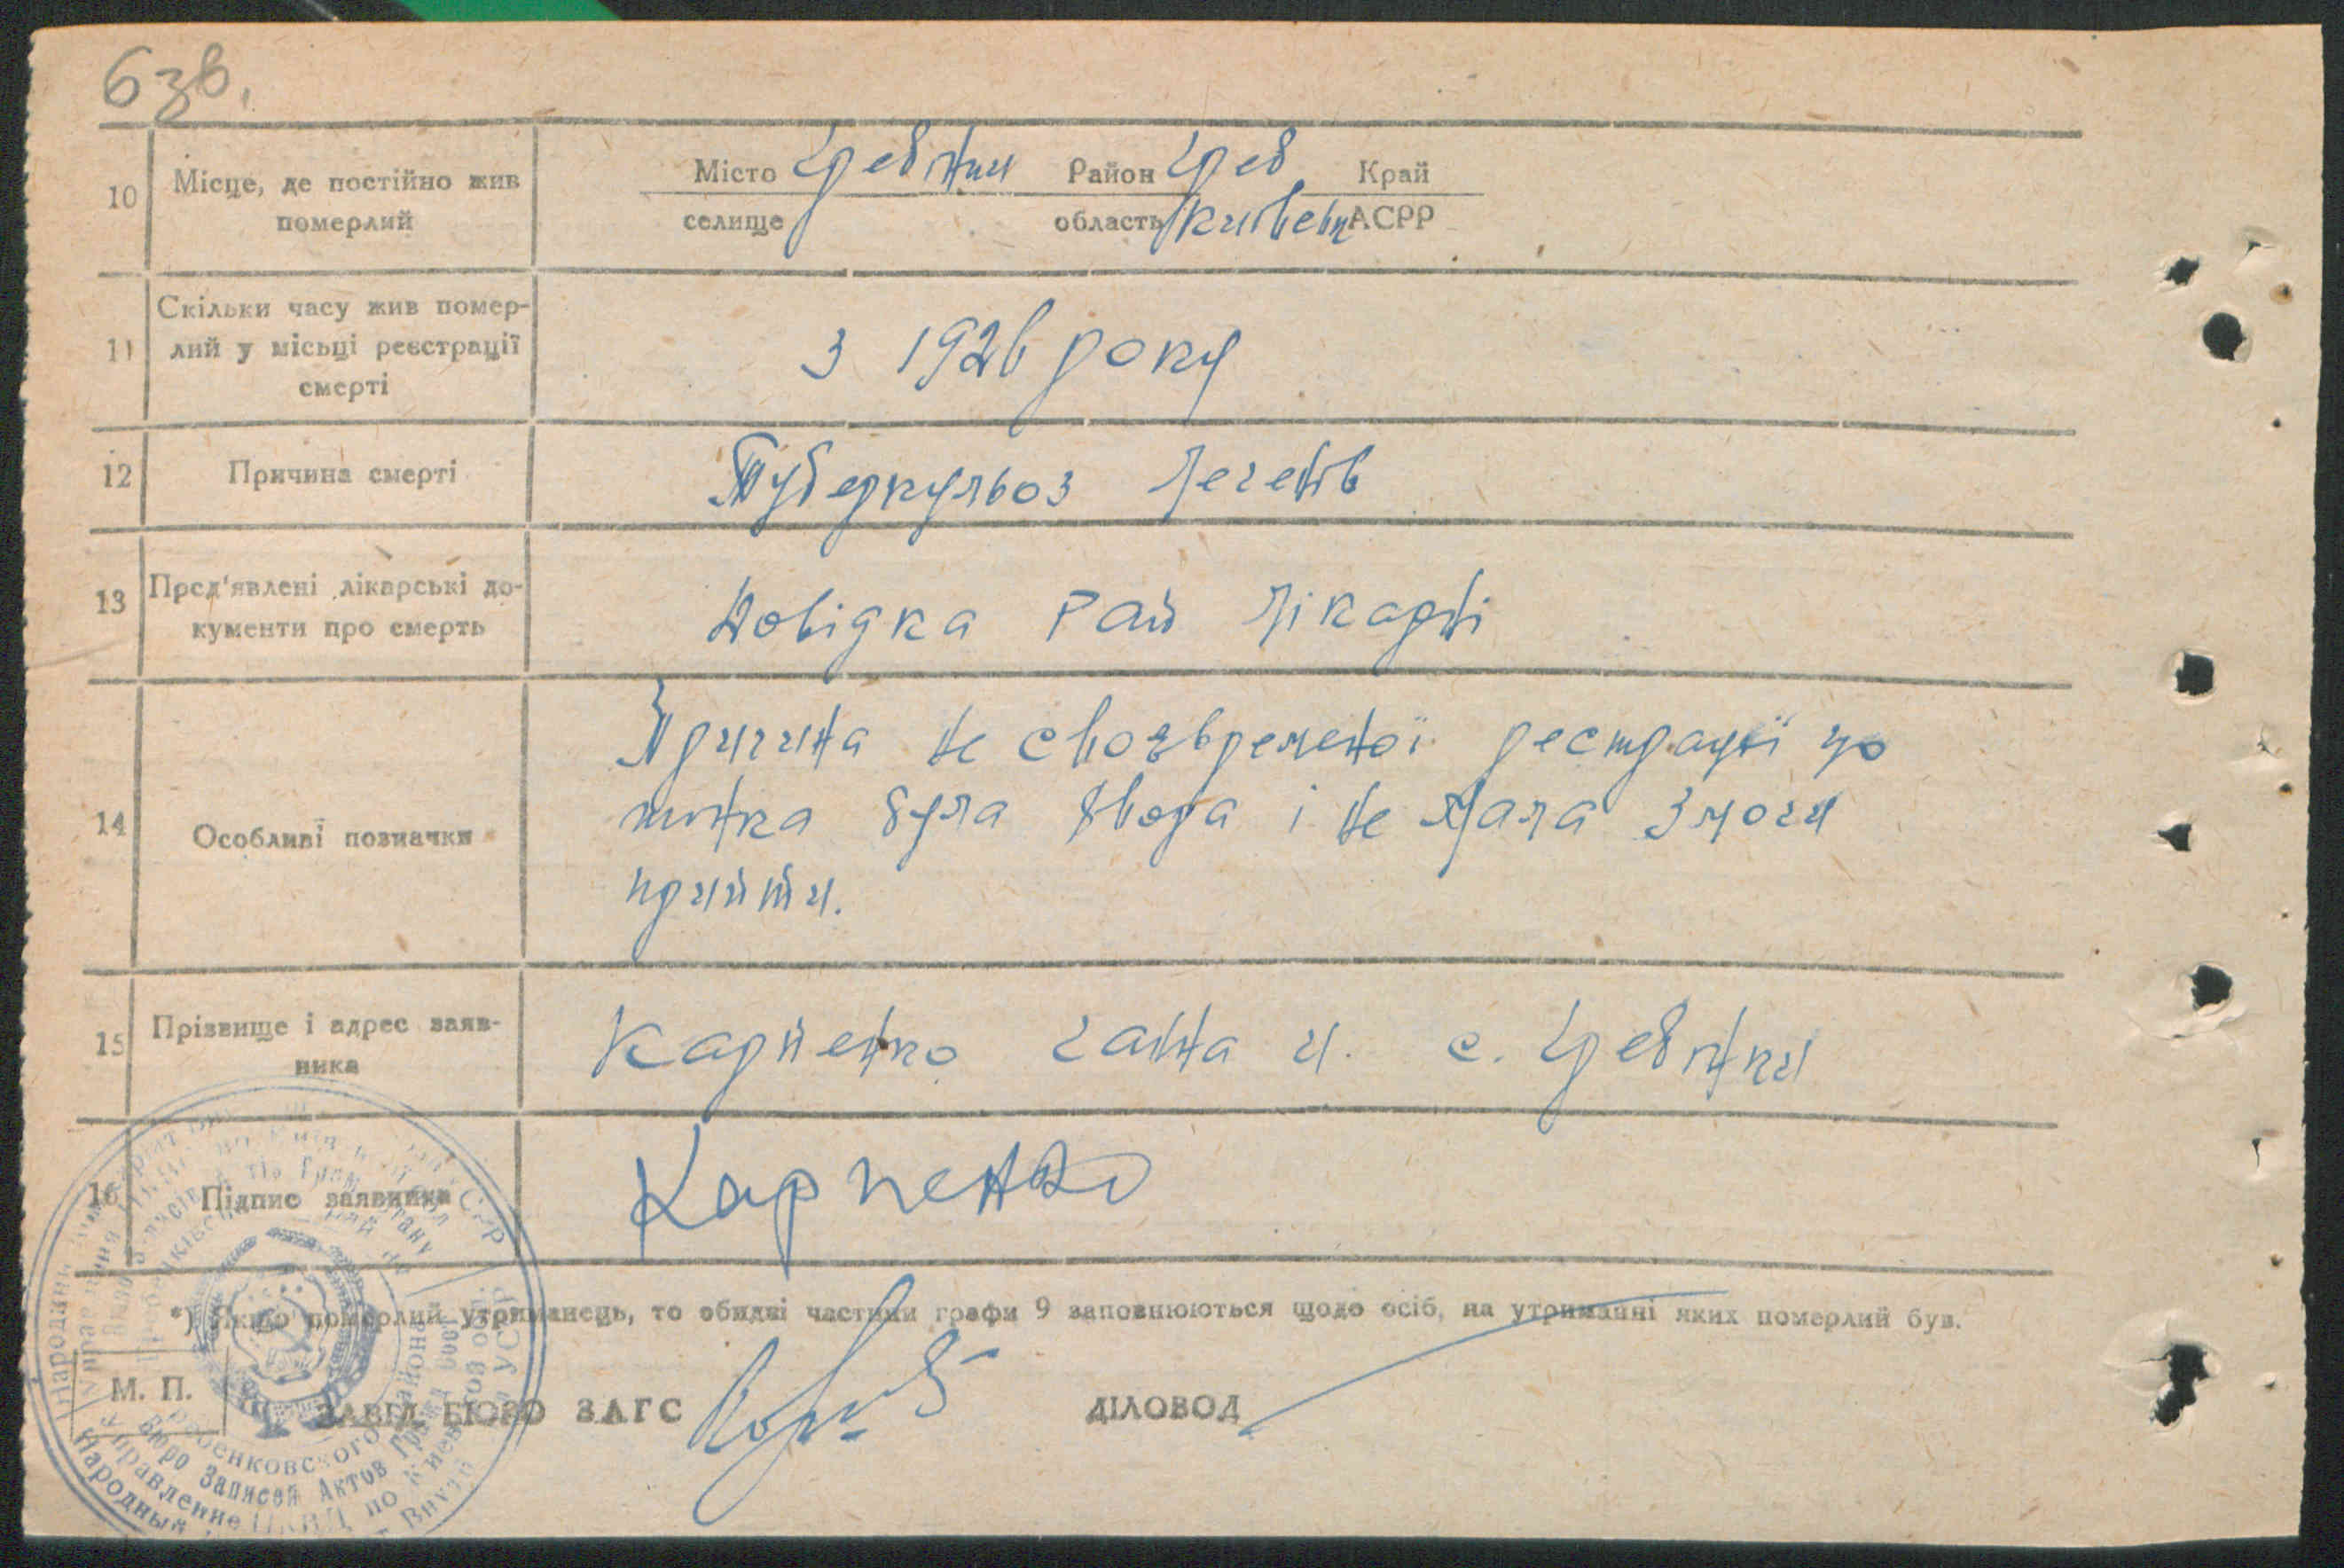 6зв.
10 Місце, де постійно жив померлий
Місто Гребінки Район Греб Край
селище область Київськ АСРР
11 Скільки часу жив помер-
лий у місьці реєстрації
смерті
з 1926 року
12 Причина смерті
Туберкульоз легенів
13 Пред'явлені лікарські до-
кументи про смерть
Довідка Рай лікарні
14 Особливі позначки
Причина не своэвременої рестрації що
жінка була хвора і не мала змоги
прийти.
15 Прізвище і адрес заяв-
ника
Карпенко Ганна И. с. Гребінки
16 Підпис заявника
Карпенко
*) Якщо померлий утриманець, то обидві частини графи 9 заповнюються щодо осіб, на утриманні яких померлий був.
М. П.
ЗАВІД. БЮРО ЗАГС
ДІЛОВОД
Бюро Записей Актов
Управление НКВД по Киев
Народный